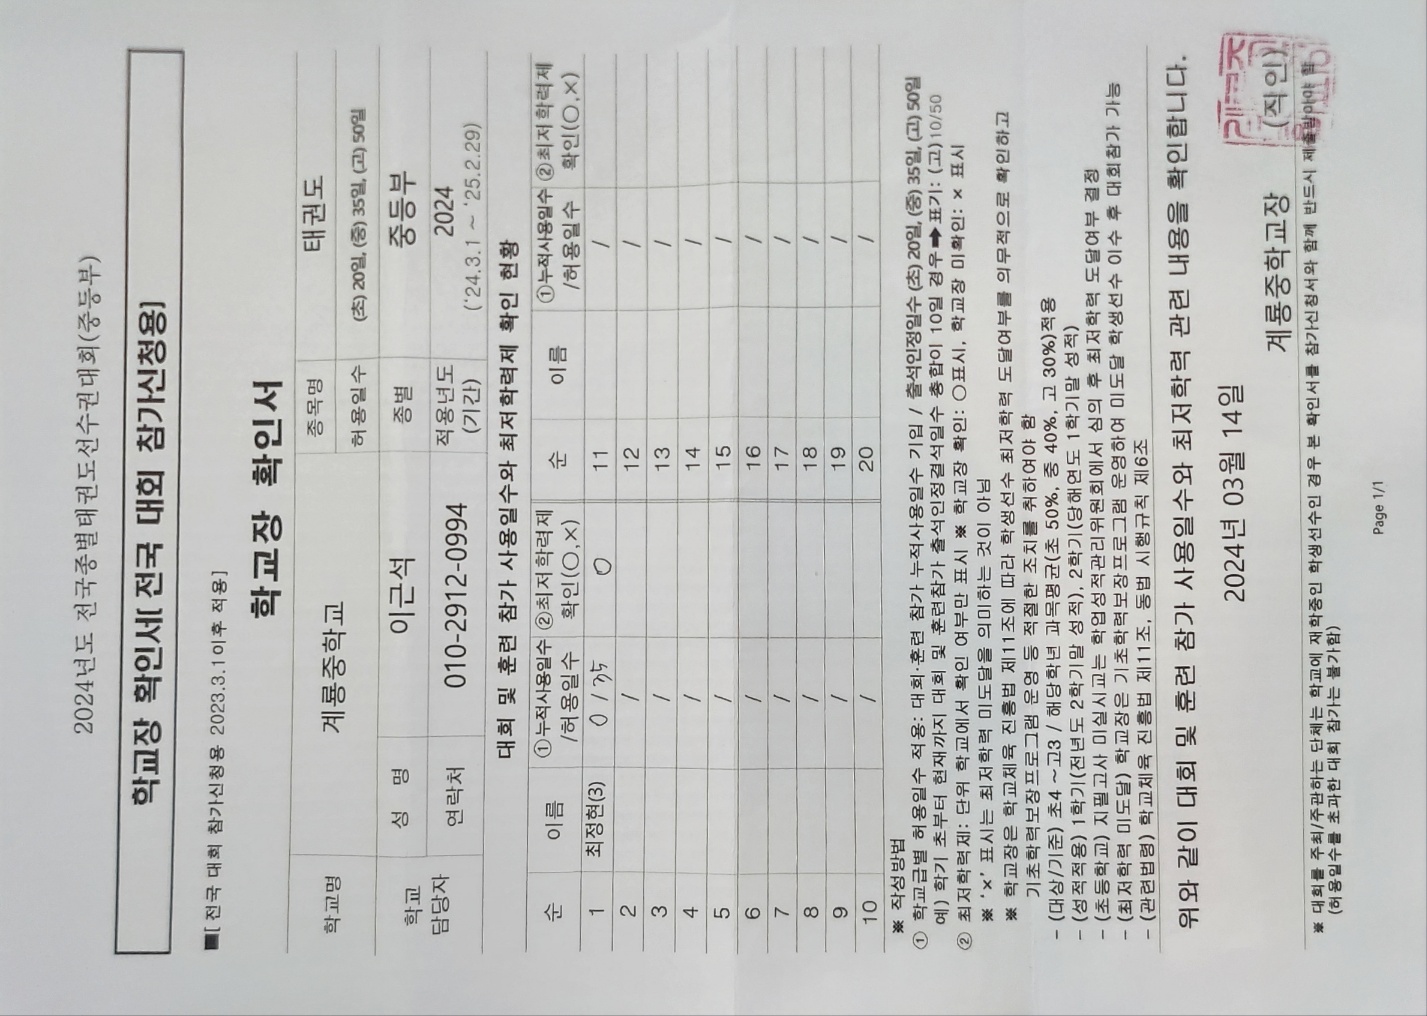 2024년도 전국종별태권도선수권대회(중등부)
학교장 확인서[전국 대회 참가신청용]
■[ 전국 대회 참가신청용 2023.3.1이후 적용]
학교장 확인서
학교명 계룡중학교 종목명 태권도
허용일수 (초) 20일, (중) 35일, (고) 50일
학교 담당자 성 명 이근석 종별 중등부
연락처 010-2912-0994 적용년도 (기간) 2024 ('24.3.1 ~ '25.2.29)
대회 및 훈련 참가 사용일수와 최저학력제 확인 현황
순 이름 ①누적사용일수 /허용일수 ②최저학력제 확인(○,×) 순 이름 ①누적사용일수 /허용일수 ②최저학력제 확인(○,×)
1 최정현(3) 0 / 35 ○ 11 /
2 / 12 /
3 / 13 /
4 / 14 /
5 / 15 /
6 / 16 /
7 / 17 /
8 / 18 /
9 / 19 /
10 / 20 /
※ 작성방법
① 학교급별 허용일수 적용: 대회·훈련 참가 누적사용일수 기입 / 출석인정일수 (초) 20일, (중) 35일, (고) 50일
예) 학기 초부터 현재까지 대회 및 훈련참가 출석인정결석일수 총합이 10일 경우 ➡ 표기: (고)10/50
② 최저학력제: 단위 학교에서 확인 여부만 표시 ※ 학교장 확인: ○표시, 학교장 미확인: × 표시
※ '×' 표시는 최저학력 미도달을 의미하는 것이 아님
※ 학교장은 학교체육 진흥법 제11조에 따라 학생선수 최저학력 도달여부를 의무적으로 확인하고
기초학력보장프로그램 운영 등 적절한 조치를 취하여야 함
- (대상/기준) 초4 ~고3 / 해당학년 과목평균(초 50%, 중 40%, 고 30%)적용
- (성적적용) 1학기(전년도 2학기말 성적), 2학기(당해연도 1학기말 성적)
- (초등학교) 지필고사 미실시교는 학업성적관리위원회에서 심의 후 최저학력 도달여부 결정
- (최저학력 미도달) 학교장은 기초학력보장프로그램 운영하여 미도달 학생선수 이수 후 대회참가 가능
- (관련법령) 학교체육 진흥법 제11조, 동법 시행규칙 제6조
위와 같이 대회 및 훈련 참가 사용일수와 최저학력 관련 내용을 확인합니다.
2024년 03월 14일
계룡중학교장 (직인)
※ 대회를 주최/주관하는 단체는 학교에 재학중인 학생선수인 경우 본 확인서를 참가신청서와 함께 반드시 제출받아야 함
(허용일수를 초과한 대회 참가는 불가함)
Page 1/1